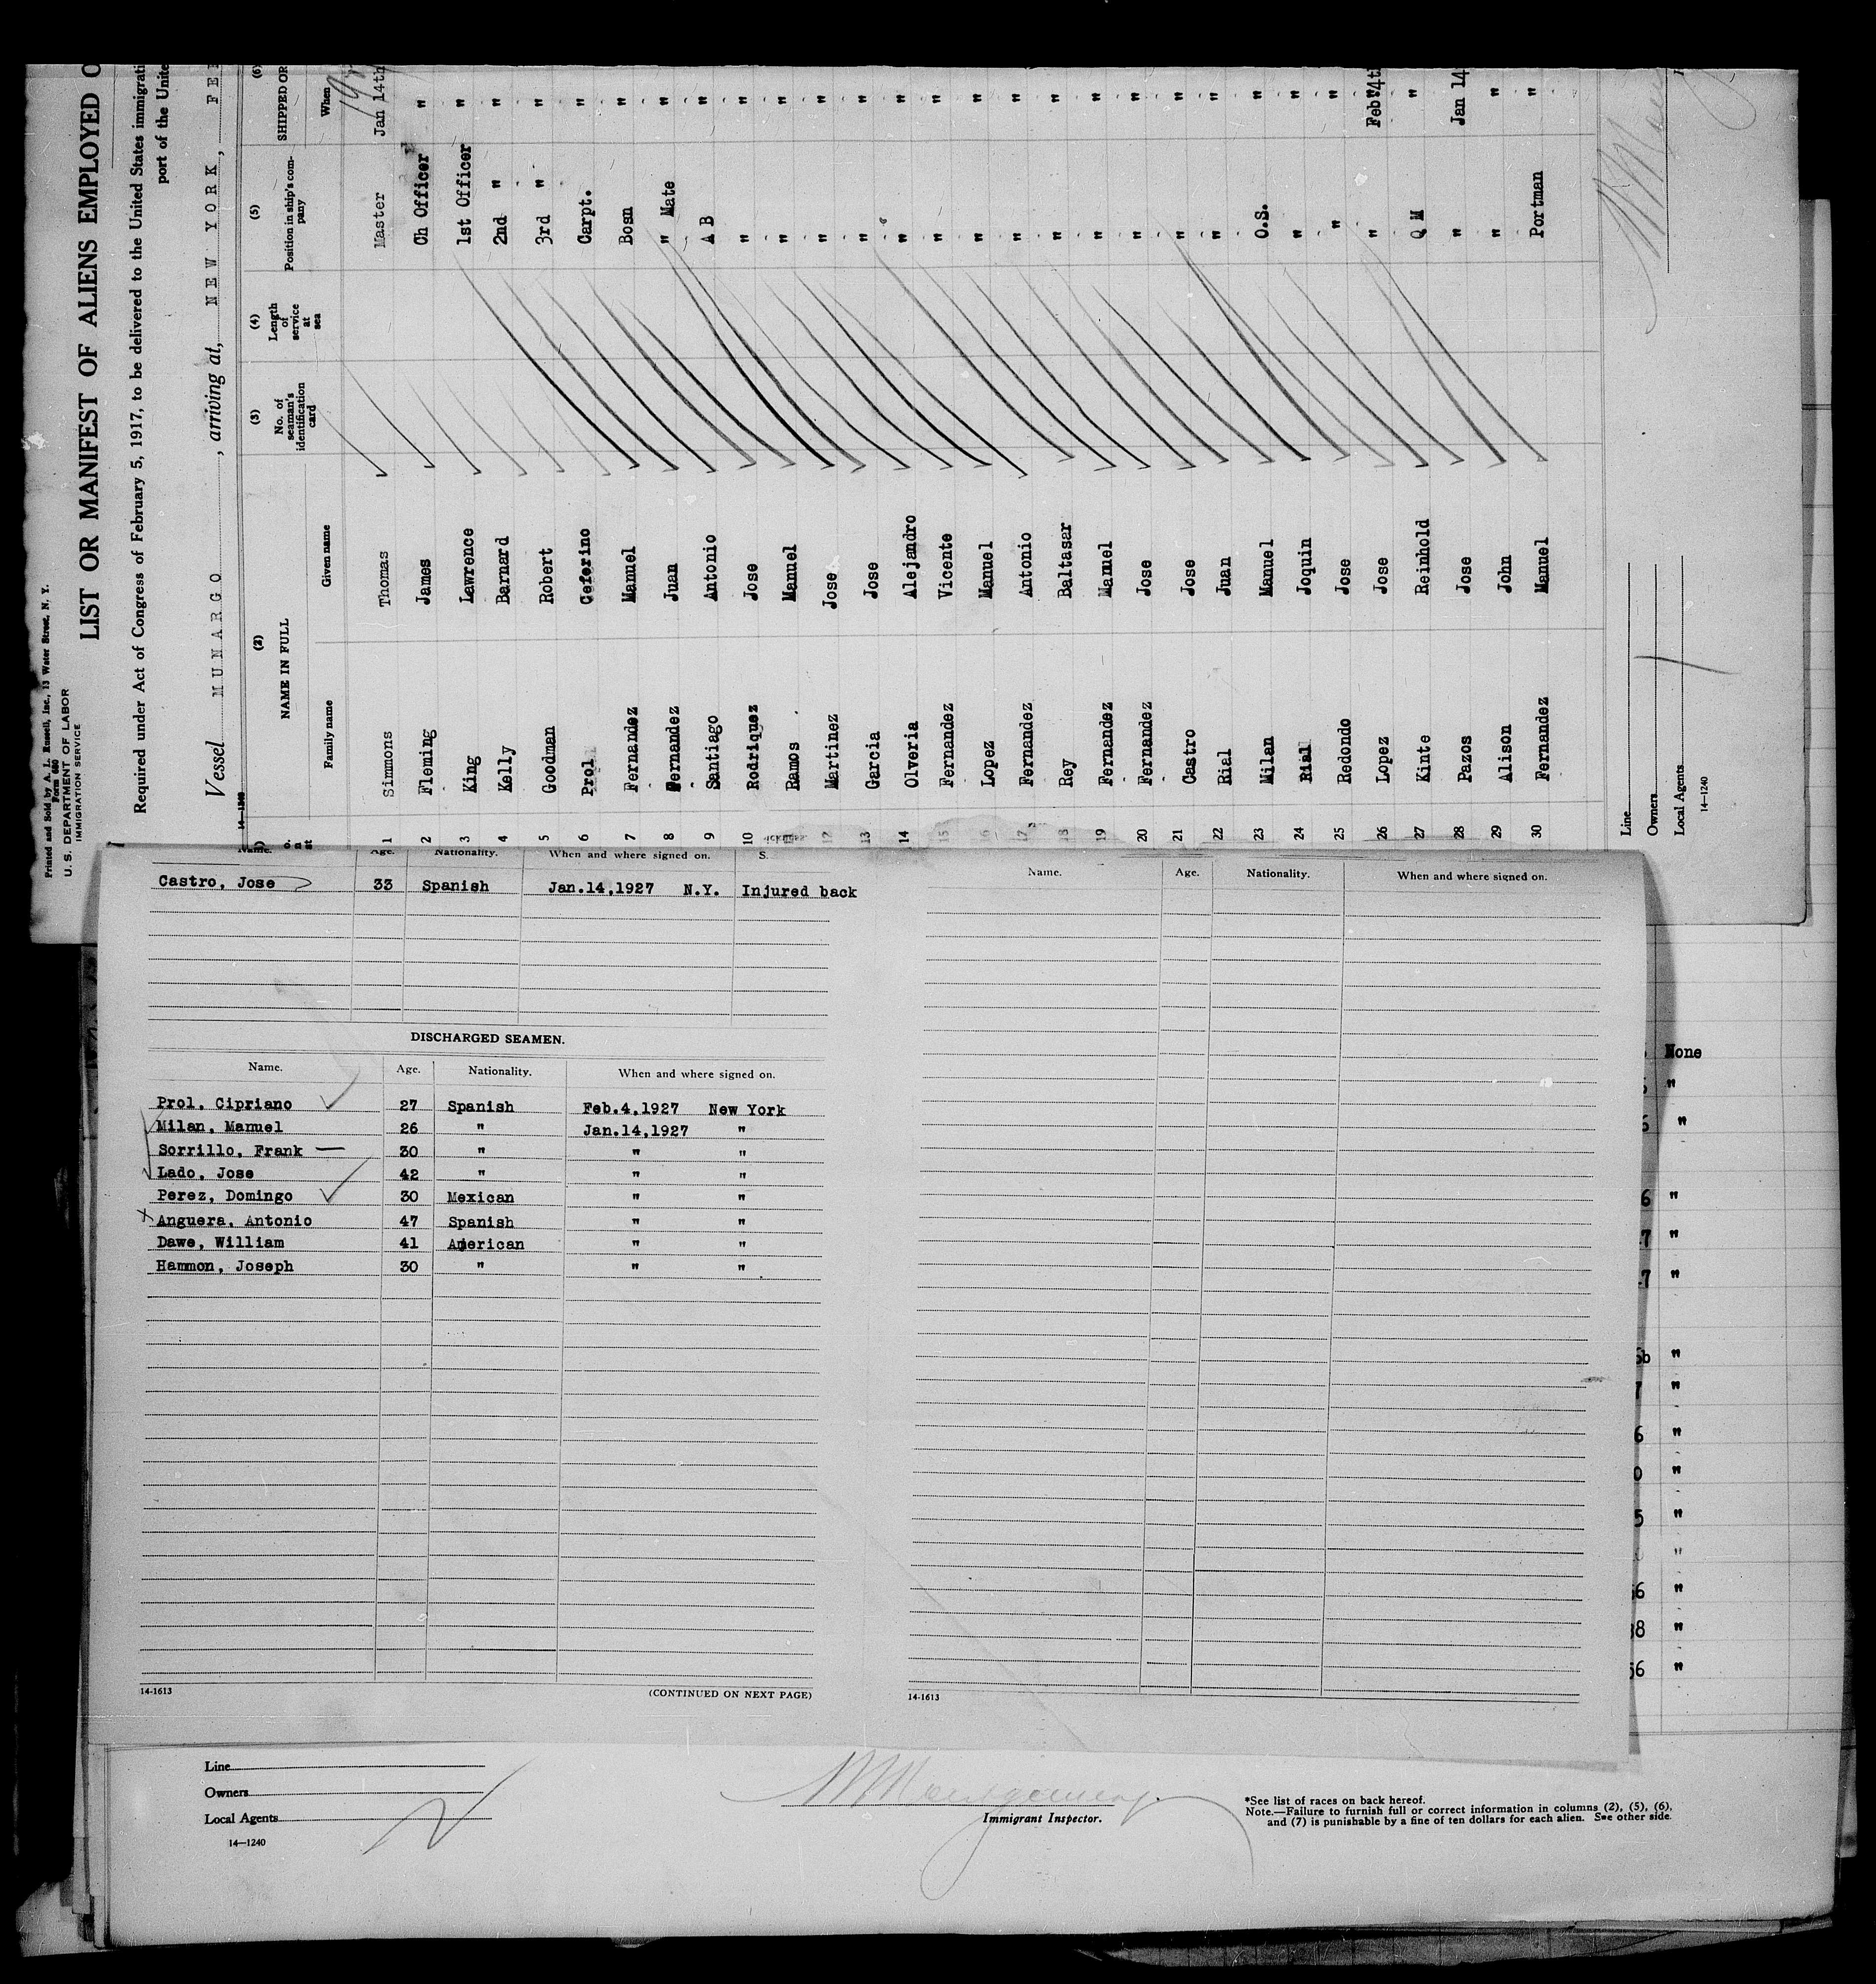 Printed and Sold by A. L. Russell, Inc., 13 Water Street, N. Y.
U. S. DEPARTMENT OF LABOR
IMMIGRATION SERVICE
LIST OR MANIFEST OF ALIENS EMPLOYED O
Required under Act of Congress of February 5, 1917, to be delivered to the United States immigrati
port of the Unite
Vessel MUNARGO , arriving at, NEW YORK , FEB
(2) (3) (4) (5) (6)
NAME IN FULL No. of seaman's identification card Length of service at sea Position in ship's company SHIPPED OR
Family name Given name When
1 Simmons Thomas Master Jan 14th
2 Fleming James Ch Officer "
3 King Lawrence 1st Officer "
4 Kelly Barnard 2nd " "
5 Goodman Robert 3rd " "
6 Prol Ceferino Carpt. "
7 Fernandez Manuel Bosn "
8 Fernandez Juan " Mate "
9 Santiago Antonio A B "
10 Rodriquez Jose " "
11 Ramos Manuel " "
12 Martinez Jose " "
13 Garcia Jose " "
14 Olveria Alejandro " "
15 Fernandez Vicente " "
16 Lopez Manuel " "
17 Fernandez Antonio " "
18 Rey Baltasar " "
19 Fernandez Manuel " "
20 Fernandez Jose " "
21 Castro Jose " "
22 Rial Juan " "
23 Milan Manuel O.S. "
24 Rial Joquin " "
25 Redondo Jose " "
26 Lopez Jose " Feb 4th
27 Kinte Reinhold Q M "
28 Pazos Jose " Jan 14
29 Alison John " "
30 Fernandez Manuel Portman "
Line
Owners
Local Agents
14—1240
Name. Age. Nationality. When and where signed on.
Castro, Jose 33 Spanish Jan.14,1927 N.Y. Injured back
DISCHARGED SEAMEN.
Name. Age. Nationality. When and where signed on.
Prol, Cipriano 27 Spanish Feb.4,1927 New York
Milan, Manuel 26 " Jan.14,1927 "
Sorrillo, Frank 30 " " "
Lado, Jose 42 " " "
Perez, Domingo 30 Mexican " "
Anguera, Antonio 47 Spanish " "
Dawe, William 41 American " "
Hammon, Joseph 30 " " "
14-1613 (CONTINUED ON NEXT PAGE)
Name. Age. Nationality. When and where signed on.
14-1613
None
"
6 "
6 "
7 "
7 "
6b "
7 "
6 "
0 "
5 "
"
56 "
38 "
56 "
Line
Owners
Local Agents
14—1240
Immigrant Inspector.
*See list of races on back hereof.
Note.—Failure to furnish full or correct information in columns (2), (5), (6),
and (7) is punishable by a fine of ten dollars for each alien. See other side.